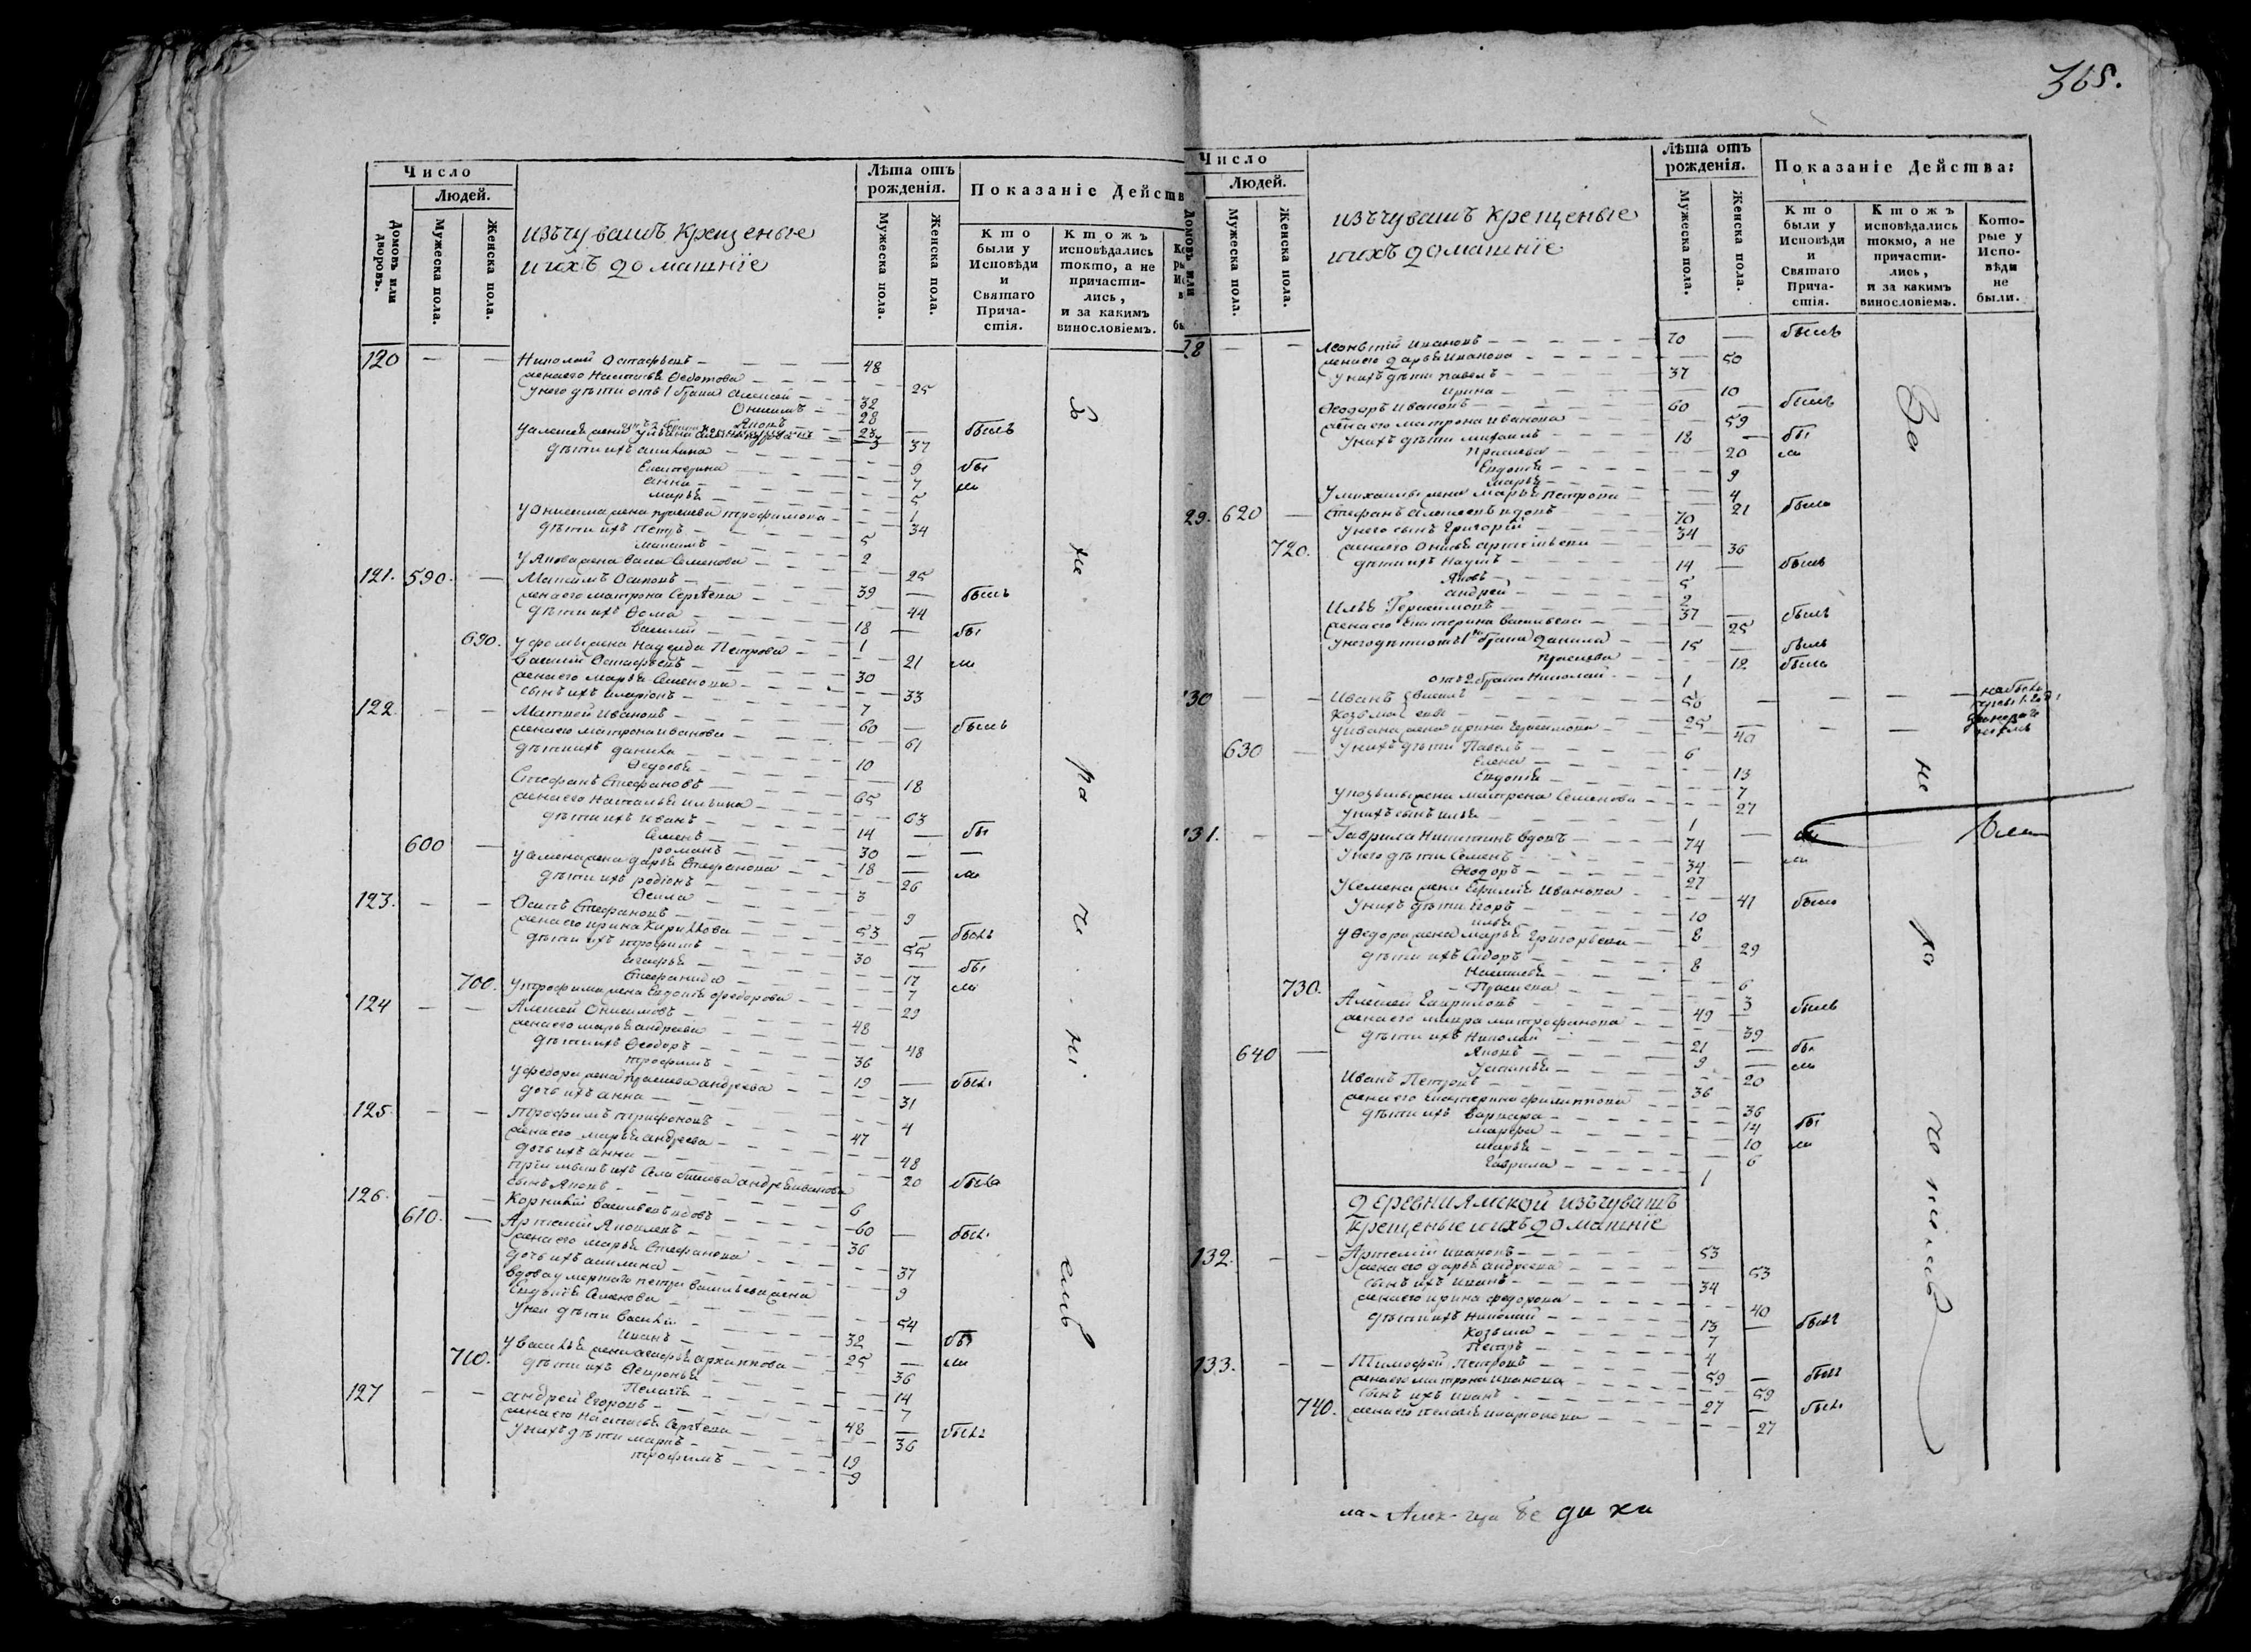 365.
Число
Людей.
Домовъ или дворовъ.
Мужеска пола.
Женска пола.
изъ чувашъ крещеные
и ихъ домашнїе
Лѣта отъ рожденія.
Мужеска пола.
Женска пола.
Показаніе Действ
Кто были у Исповѣди и Святаго Причастія.
Ктожъ исповѣдались токмо, а не причастились, и за какимъ винословіемъ.
120 — — Николай Остафьевъ — 48
жена его Настасья Ѳедотова — 25
у него дѣти отъ 1 брака Алексей — 32
Онисимъ — 28
Яковъ — 23 — былъ
37
дѣти ихъ Акилина — 9 бы
Екатерина — 7 ли
Анна — 5
Марья — 1
у Онисима жена Праскева Трофимова — 34
дѣти ихъ Петръ — 5
Максимъ — 2
у Якова жена Васа Семенова — 25
121. 590. — Максимъ Осиповъ — 39 — былъ
жена его Матрона Сергѣева — 44
дѣти ихъ Ѳома — 18 — бы
Василий — 1
690. у Фомы жена Надежда Петрова — 21 ли
Василий Остафьевъ — 30
жена его Марья Семенова — 33
сынъ ихъ Иларіонъ — 7
122. — — Матвей Ивановъ — 60 — былъ
жена его Матрона Иванова — 61
дѣти ихъ Данила — 10
Ѳедосья — 18
Стефанъ Стефановъ — 65
жена его Наталья Ильина — 63
дѣти ихъ Иванъ — 14 — бы
Семенъ — 30 — —
600 — Романъ — 18 — ли
у Семена жена Дарья Стефанова — 26
дѣти ихъ Родіонъ — 3
Ѳекла — 9
123. — — Осипъ Стефановъ — 53 — былъ
жена его Ирина Кирилова — 55
дѣти ихъ Трофимъ — 30 — бы
Агафья — 17 ли
Стефанида — 7
700. у Трофима жена Евдокия Федорова — 29
124 — — Алексей Онисимовъ — 48
жена его Марья Андреева — 48
дѣти ихъ Ѳеодоръ — 36
Трофимъ — 19 — былъ
у Федора жена Праскева Андреева — 31
дочь ихъ Анна — 4
125. — — Трофимъ Трифоновъ — 47
жена его Марья Андреева — 48
дочь ихъ Анна — 20 была
сынъ Яковъ — 6
126. — — Корнилій Васильевъ вдовъ — 60 — былъ
610. — Артемій Яковлевъ — 36
жена его Марья Стефанова — 37
дочь ихъ Акилина — 9
вдова умершаго Петра Васильева жена
Евдокія Семенова — 54
у неи дѣти Василій — 32 — бы
Иванъ — 25 — ли
у Василья жена Агафья Архиппова — 36
710. дѣти ихъ Ѳевронья — 14
Пелагія — 7
127 — — Андрей Егоровъ — 48 — былъ
жена его Настасья Сергѣева — 36
у нихъ дѣти Маркъ — 19
Трофимъ — 9
Число
Людей.
Домовъ или
Мужеска пола.
Женска пола.
изъ чувашъ крещеные
и ихъ домашнїе
Лѣта отъ рожденія.
Мужеска пола.
Женска пола.
Показаніе Действа:
Кто были у Исповѣди и Святаго Причастія.
Ктожъ исповѣдались токмо, а не причастились, и за какимъ винословіемъ.
Которые у Исповѣди не были.
28 — — Леонтій Ивановъ — 70 — былъ
жена его Дарья Иванова — 50
у нихъ дѣти Павелъ — 37
Ирина — 10
Ѳеодоръ Ивановъ — 60 — былъ
жена его Матрона Иванова — 59
у нихъ дѣти Михаилъ — 18 — бы
Праскева — 20 ли
Евдокія — 9
Марья — 4
у Михаилы жена Марья Петрова — 21 была
29. 620 — Стефанъ Алексеевъ вдовъ — 70
у него сынъ Григорій — 34
720. жена его Онисья Артемьева — 36
дѣти ихъ Наумъ — 14 — былъ
Яковъ — 5
Андрей — 2
Илья Герасимовъ — 37 — былъ
жена его Екатерина Васильева — 25
у него дѣти отъ 1го брака Данила — 15 — былъ
Праскева — 12 была
отъ 2 брака Николай — 1
130 — — Иванъ
Козьма — 25
у Ивана жена Ирина Герасимова — 40
630 — у нихъ дѣти Павелъ — 6
Елена — 13
Евдокія — 7
у Козьмы жена Матрена Семенова — 27
у нихъ сынъ Илья — 1
131. — — Гаврила Никитинъ вдовъ — 74
у него дѣти Семенъ — 34 — ли
Ѳеодоръ — 27
у Семена жена Ефимія Иванова — 41 была
у нихъ дѣти Егоръ — 10
Илья — 8
у Ѳедора жена Марья Григорьева — 29
дѣти ихъ Сидоръ — 8
Настасья — 6
730. Праскева — 3
Алексей Гавриловъ — 49 — былъ
жена его Мавра Митрофанова — 39
дѣти ихъ Николай — 21 — бы
640 — Яковъ — 9 — ли
Устинья — 20
Иванъ Петровъ — 36
жена его Екатерина Филиппова — 36
дѣти ихъ Варвара — 14 бы
Марфа — 10 ли
Марья — 6
Гаврила — 1
Деревни Ямской изъ чувашъ
крещеные и ихъ домашнїе
132. — — Артемій Ивановъ — 53
жена его Дарья Андреева — 53
сынъ ихъ Иванъ — 34
жена его Ирина Федорова — 40
дѣти ихъ Николай — 13 — былъ
Козьма — 7
Петръ — 4
133. — — Тимофей Петровъ — 59 — былъ
жена его Матрона Иванова — 59
сынъ ихъ Иванъ — 27 — былъ
740. жена его Пелагія Иларіонова — 27